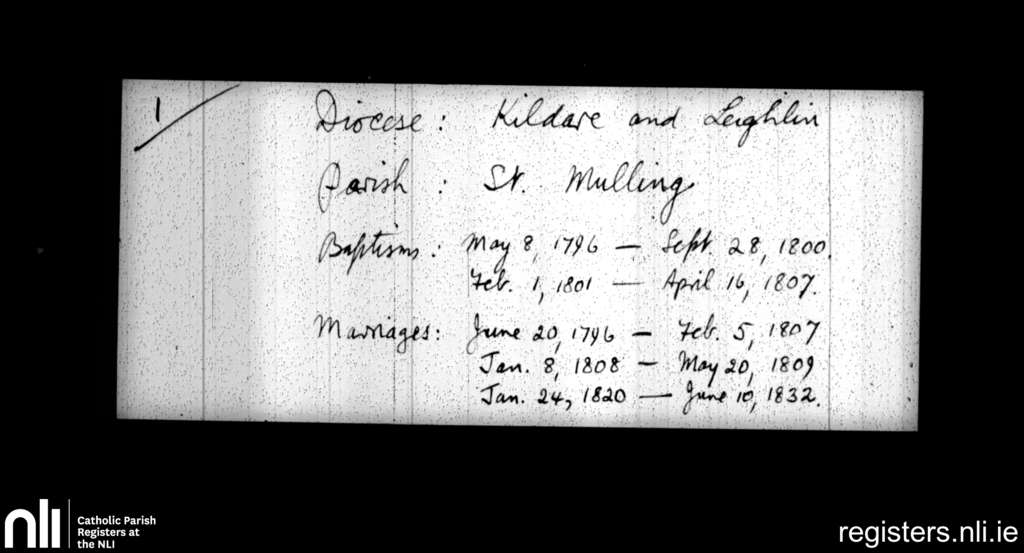 1
Diocese: Kildare and Leighlin
Parish: St. Mulling
Baptisms: May 8, 1796 — Sept. 28, 1800.
Feb. 1, 1801 — April 16, 1807.
Marriages: June 20, 1796 — Feb. 5, 1807
Jan. 8, 1808 — May 20, 1809
Jan. 24, 1820 — June 10, 1832.
nli
Catholic Parish
Registers at
the NLI
registers.nli.ie